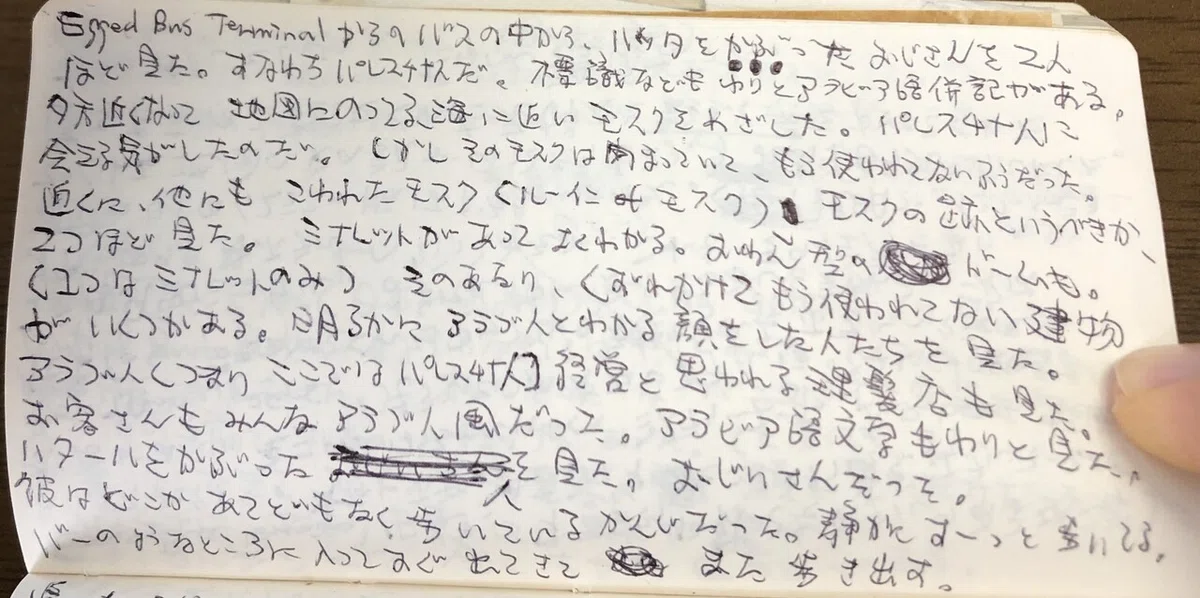 Egged Bus Terminalからのバスの中から、ハッタをかぶったおじさんを2人
ほど見た。すなわちパレスチナ人だ。標識などもわりとアラビア語併記がある。
夕方近くなって地図にのってる海に近いモスクをめざした。パレスチナ人に
会える気がしたのだ。しかしそのモスクは閉まっていて、もう使われてないふうだった。
近くに、他にもこわれたモスク(ルーイン オブ モスク) モスクの跡というべきか、
2つほど見た。ミナレットがあってよくわかる。おわん型のドームも。
(1つはミナレットのみ) そのあたり、くずれかけてもう使われてない建物
がいくつかある。明らかにアラブ人とわかる顔をした人たちを見た。
アラブ人(つまりここではパレスチナ人)経営と思われる理髪店も見た。
お客さんもみんなアラブ人風だった。アラビア語文字もわりと見た。
ハタールをかぶった人を見た。おじいさんだった。
彼はどこかあてどもなく歩いているかんじだった。静かにすーっと歩いてる。
バーのようなところに入ってすぐ出てきて また歩き出す。